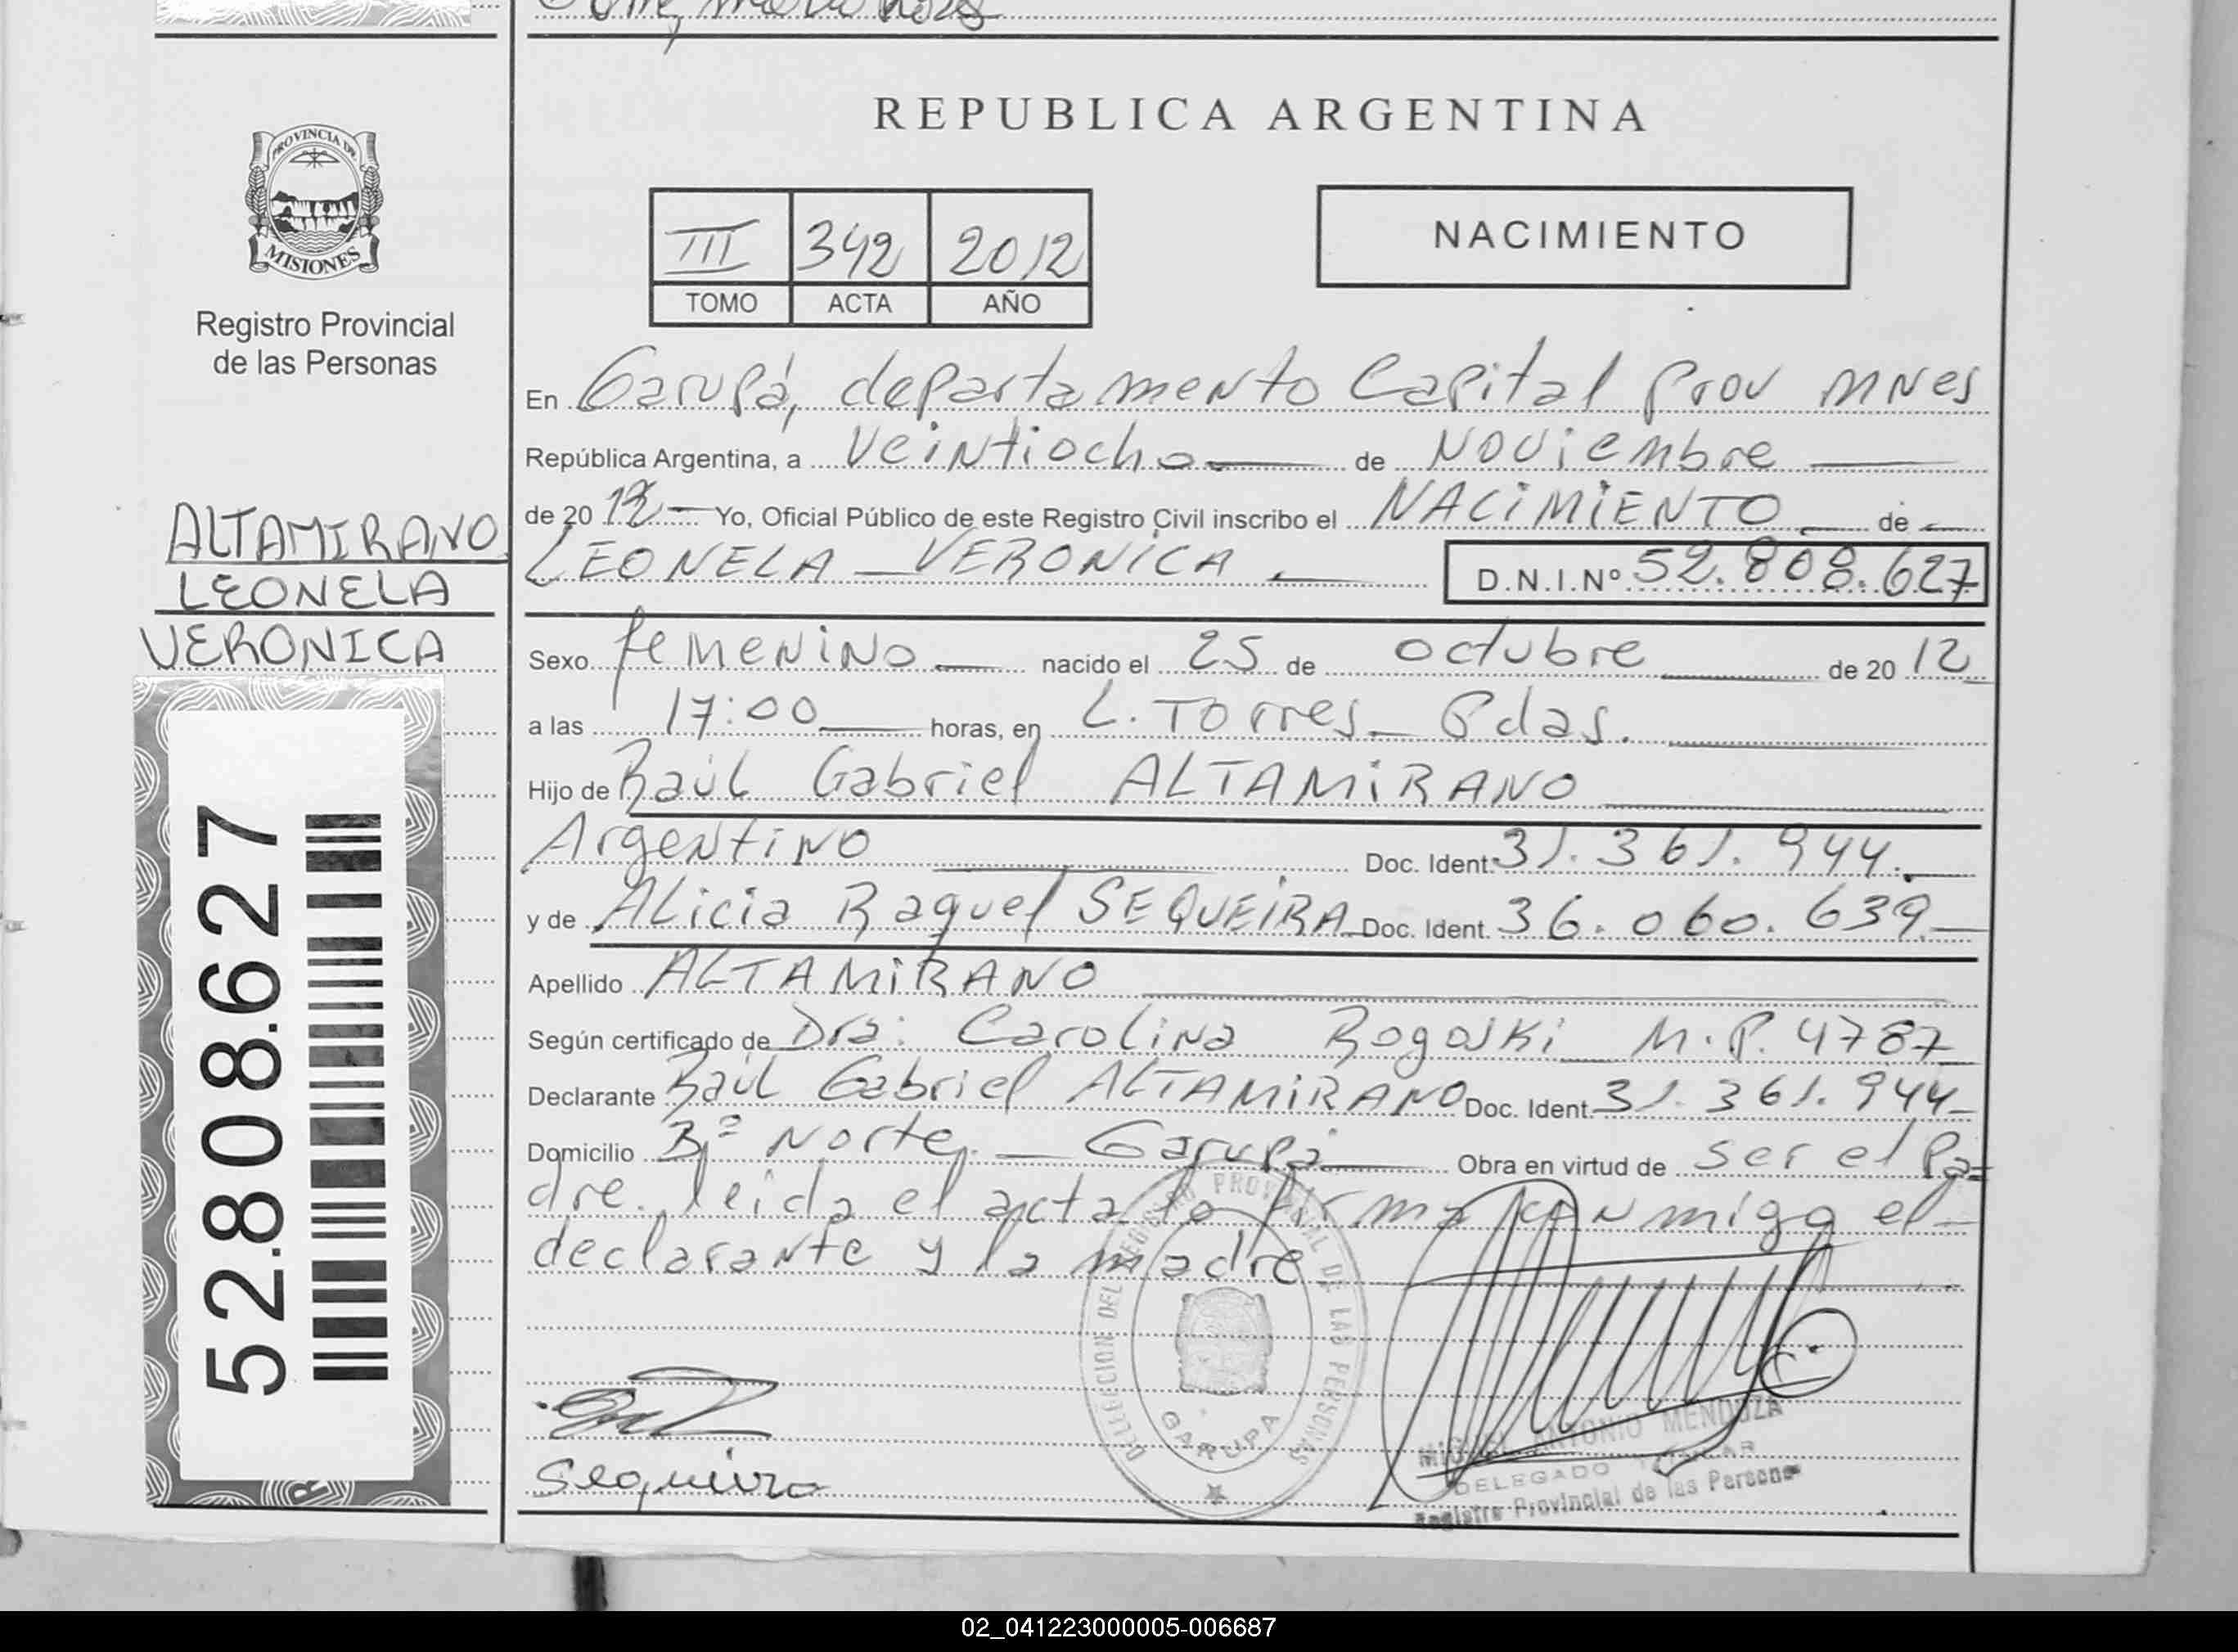 REPUBLICA ARGENTINA
PROVINCIA DE
MISIONES
Registro Provincial
de las Personas
III 342 2012
TOMO ACTA AÑO
NACIMIENTO
ALTAMIRANO
LEONELA
VERONICA
52.808.627
En Garupá, departamento Capital Prov MNes
República Argentina, a veintiocho de Noviembre
de 2012 Yo, Oficial Público de este Registro Civil inscribo el NACIMIENTO de
LEONELA VERONICA D.N.I.Nº 52.808.627
Sexo femenino nacido el 25 de octubre de 2012
a las 17:00 horas, en L. Torres - Pdas.
Hijo de Raúl Gabriel ALTAMIRANO
Argentino Doc. Ident. 31.361.944.
y de Alicia Raquel SEQUEIRA Doc. Ident. 36.060.639
Apellido ALTAMIRANO
Según certificado de Dra: Carolina M.P. 4787
Declarante Raúl Gabriel ALTAMIRANO Doc. Ident. 31.361.944
Domicilio Bº Norte - Garupá Obra en virtud de ser el Pa=
dre. leida el acta la firma conmigo el
declarante y la madre
DELEGACION DEL REGISTRO PROVINCIAL DE LAS PERSONAS
GARUPA
Sequeira
MIGUEL ANTONIO MENDOZA
DELEGADO TITULAR
Registro Provincial de las Personas
02_041223000005-006687